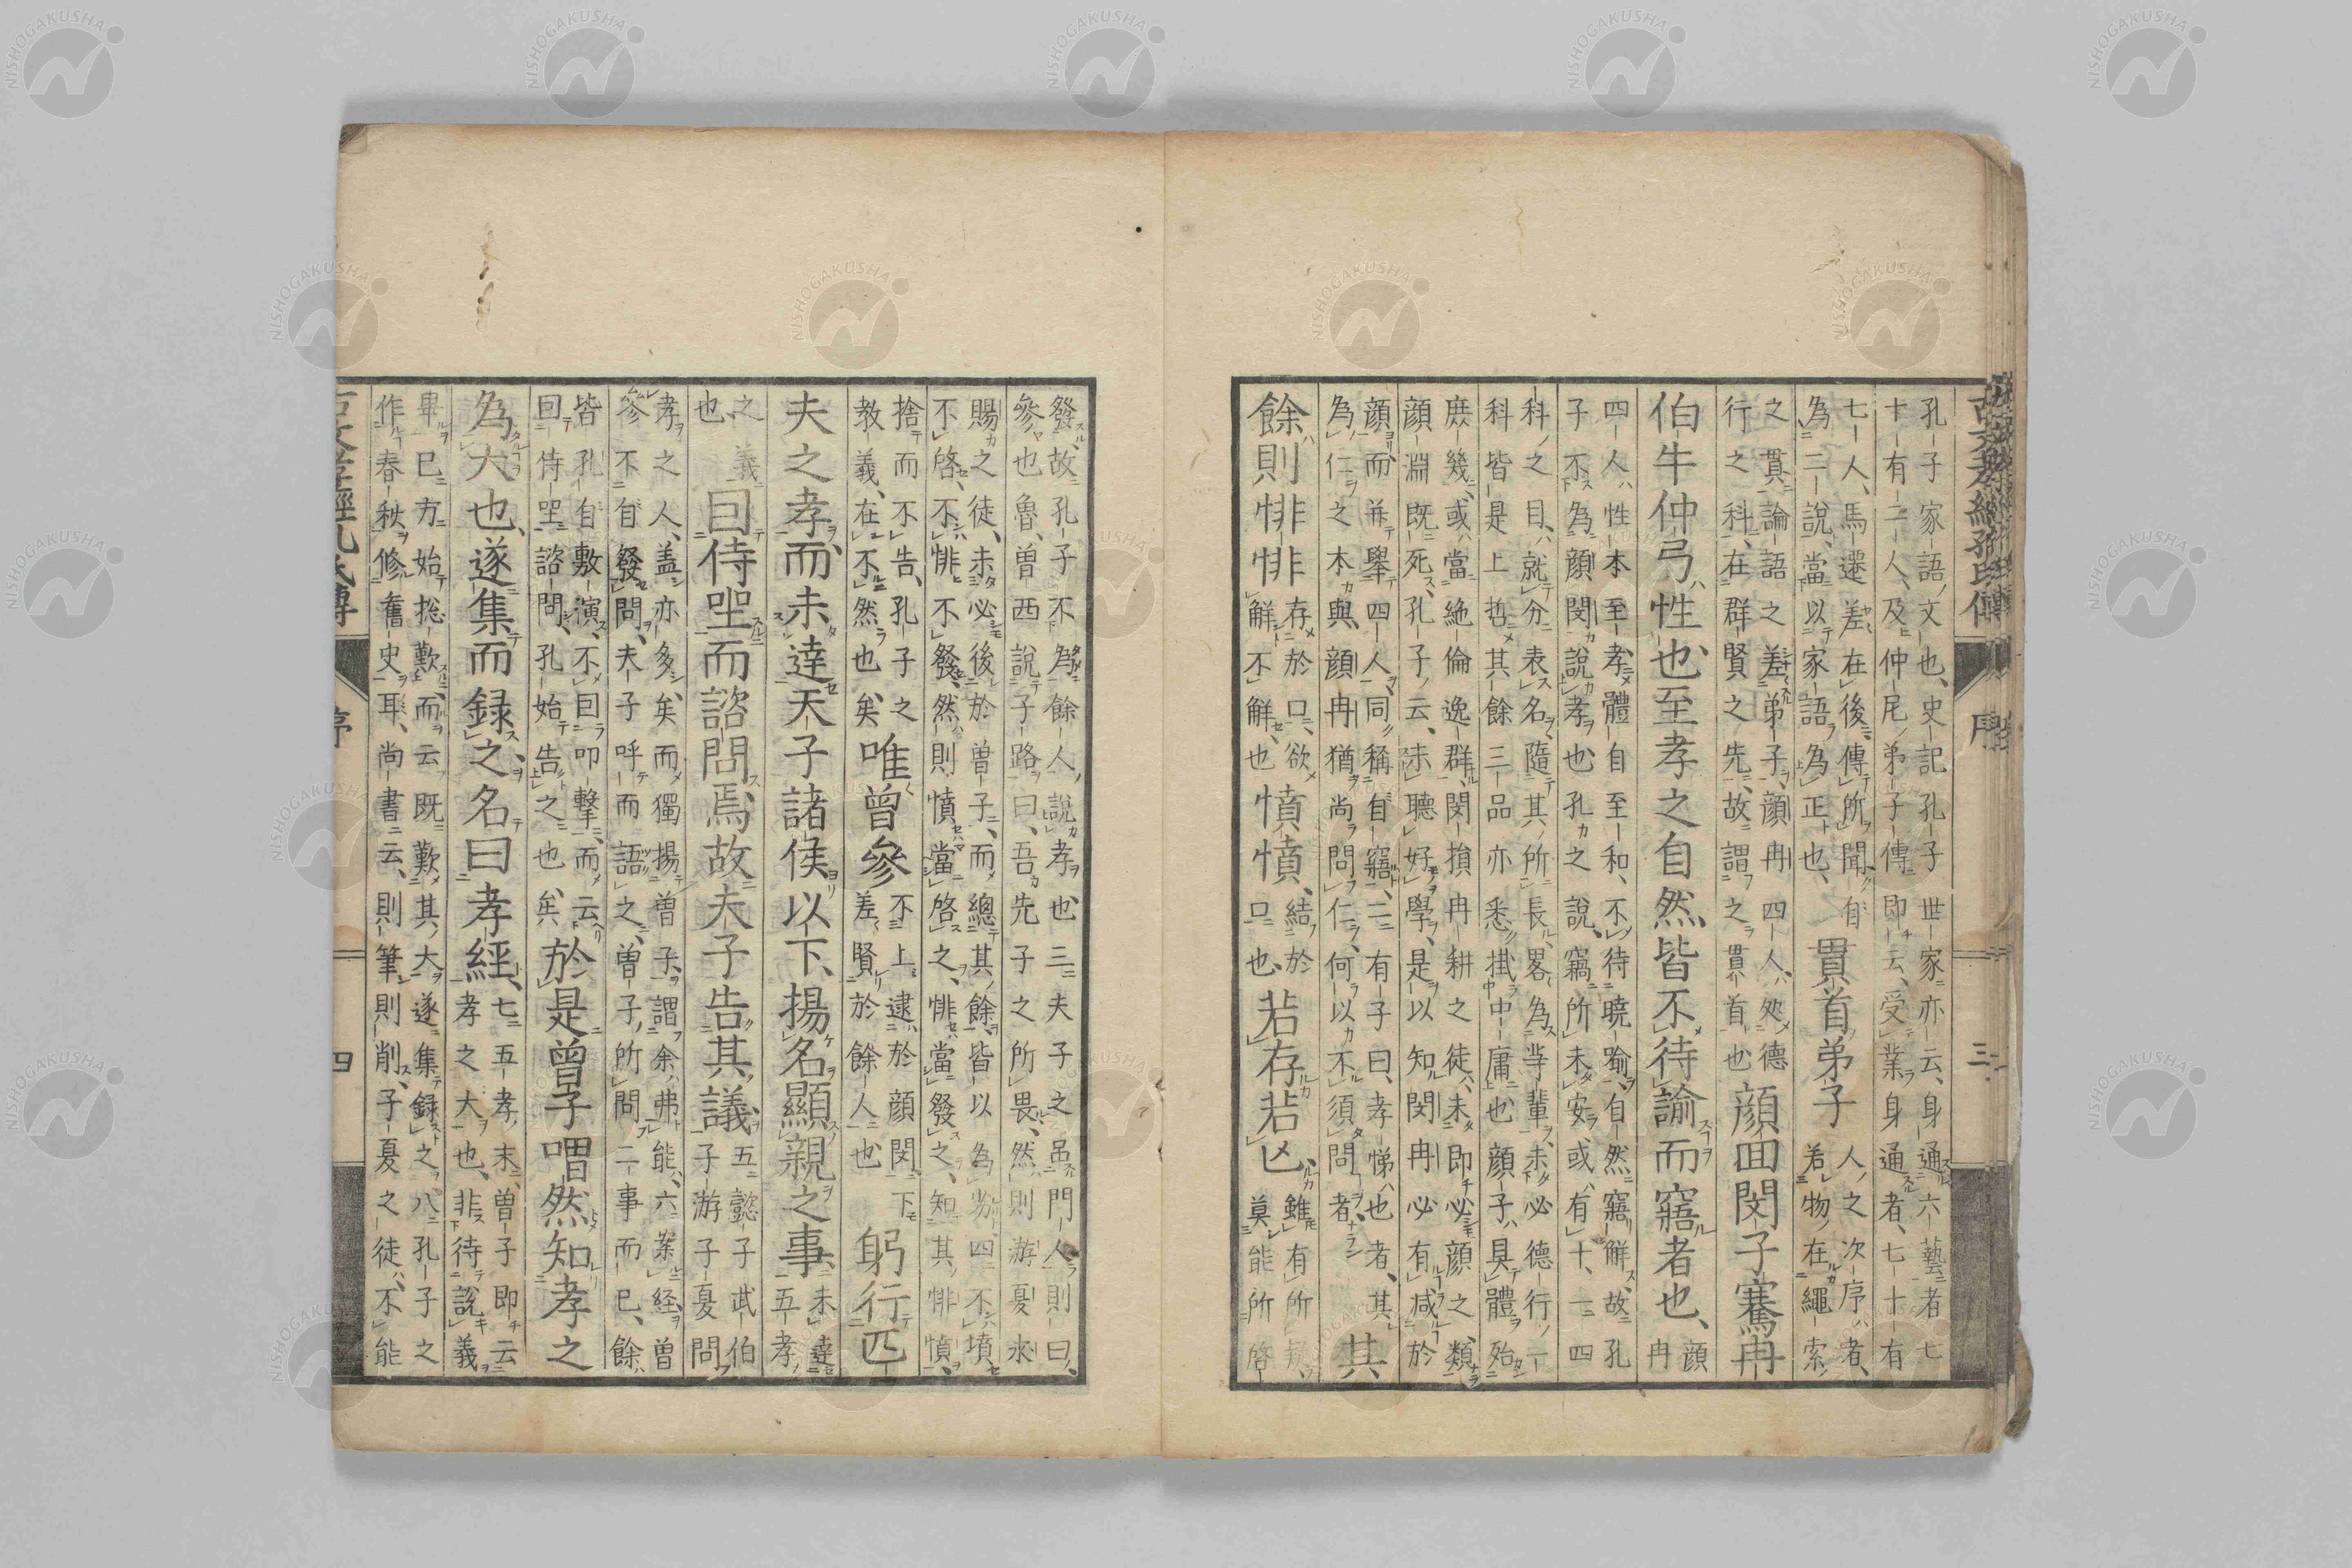 孔子家語文也史記孔子世家亦云身通六藝者七
十有二人及仲尼弟子傳即云受業身通者七十有
七人馬遷差在後傳所聞自
為二説當以家語為正也
貫首弟子
人之次序者
若物在繩索
之貫論語之差弟子顔冉四人処德
行之科在群賢之先故謂之貫首也
顔回閔子騫冉
伯牛仲弓性也至孝之自然皆不待諭而寤者也
顔
冉
四人性本至孝體自至和不待曉喻自然寤解故孔
子不為顔閔説孝也孔之説竊所未安或有十一四
科之目就分表名隨其所長畧為等輩未必德行一
科皆是上哲其餘三品亦悉掛中庸也顔子具體殆
庶幾或當絶倫逸群閔損冉耕之徒未即必顔之類
顔淵既死孔子云未聴好學是以知閔冉必有减於
顔而并舉四人同稱自寤二有子曰孝悌也者其
為仁之本與顔冉猶尚問仁何以不須問者
其
餘則悱悱
存於口欲
解不解也
憤憤
結於
口也
若存若亾
雖有所
莫能所啓
發故孔子不為餘人説孝也三夫子之吊門人則曰
參也魯曽西説子路曰吾先子之所畏然則游夏求
賜之徒未必後於曽子而總其餘皆以為劣四不墳
不啓不悱不發然則憤當啓之悱當發之知其悱憤
捨而不告孔子之
教義在不然也矣
唯曽參
不上逮於顔閔下
差賢於餘人也
躬行匹
夫之孝而未達天子諸侯以下揚名顯親之事
未達
五孝
之義
也
回侍坐而諮問焉故夫子告其議
五懿子武伯
子游子夏問
孝之人盖亦多矣而獨揚曽子謂余弗能六案経曽
參不自發問夫子呼而語之曽子所問二事而已餘
皆孔自敷演不回叩撃而云
回侍坐諮問孔始告之也矣
於是曽子喟然知孝之
為大也遂集而録之名曰孝經
七五孝末曽子即云
孝之大也非待説義
畢已方始揔歎而云既歎其大遂集録之八孔子之
作春秋修舊史耳尚書云則筆則削子夏之徒不能
古文孝經孔氏傳
序
三
序
四
NISHOGAKUSHA